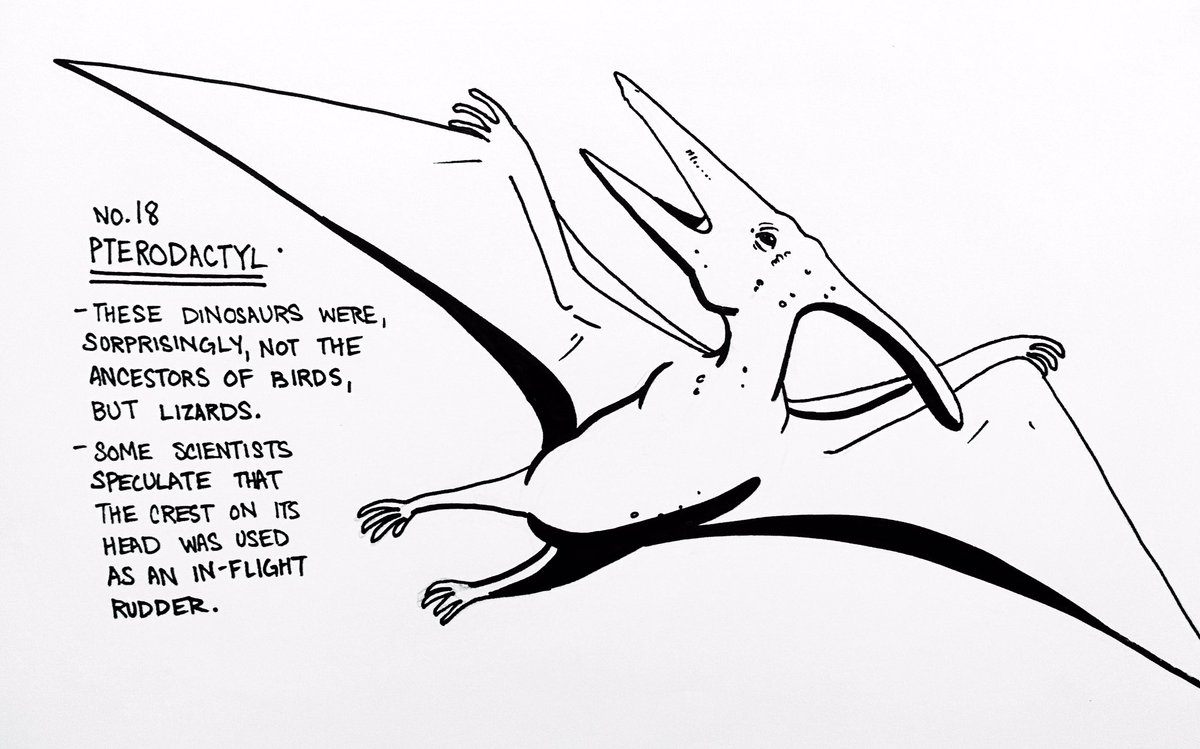 NO. 18
PTERODACTYL.
- THESE DINOSAURS WERE,
SORPRISINGLY, NOT THE
ANCESTORS OF BIRDS,
BUT LIZARDS.
- SOME SCIENTISTS
SPECULATE THAT
THE CREST ON ITS
HEAD WAS USED
AS AN IN-FLIGHT
RUDDER.